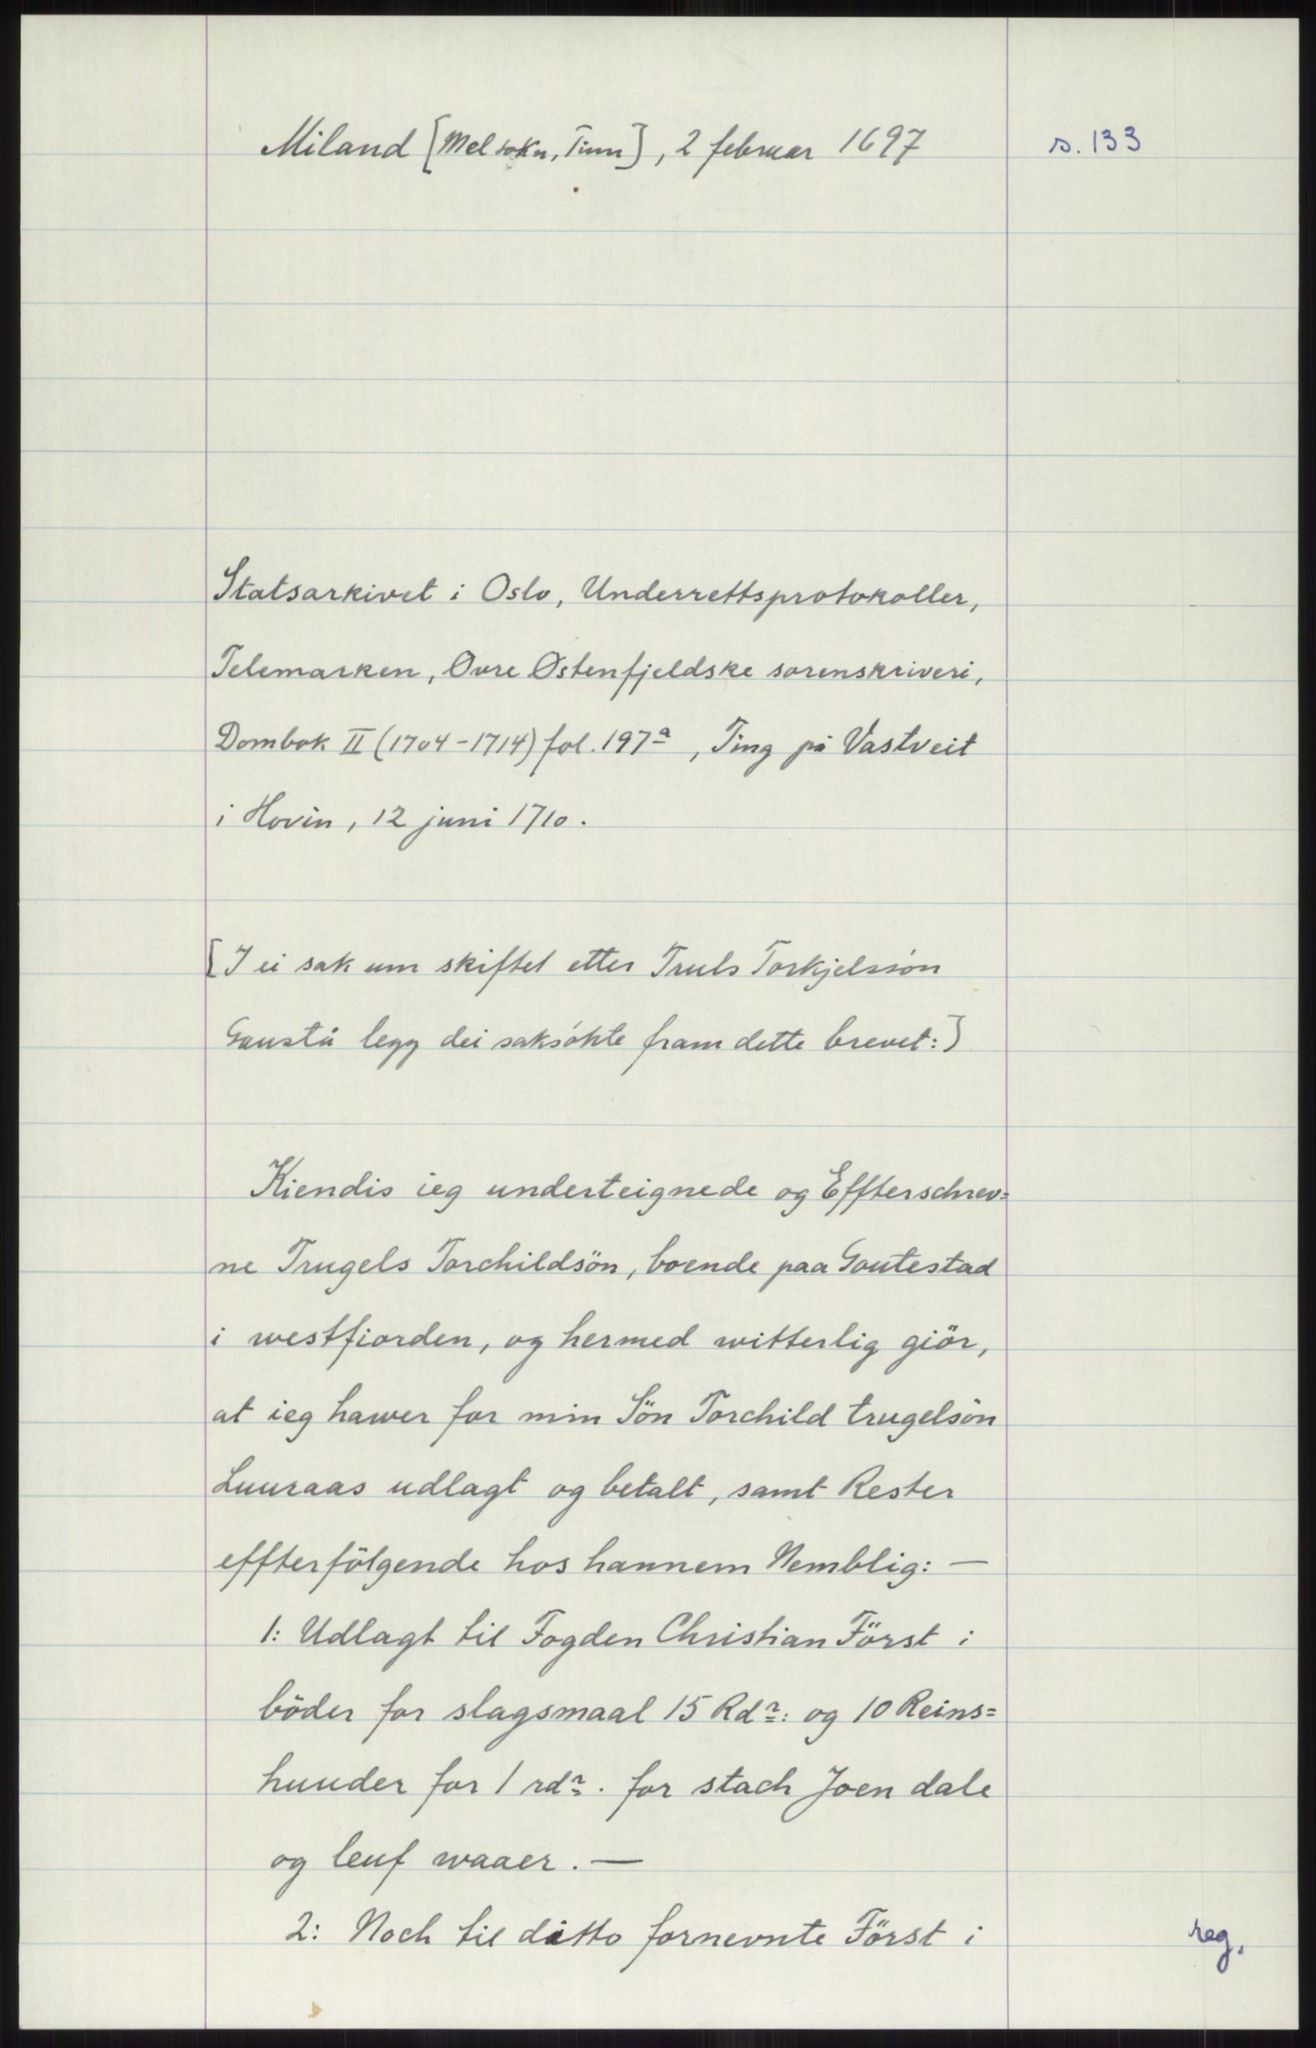 Miland [Mel sokn, Tinn], 2 februar 1697
s. 133
Statsarkivet i Oslo, Underrettsprotokoller,
Telemarken, Øvre Østenfjeldske sorenskriveri,
Dombok II (1704-1714) fol. 197a, Ting på Vastveit
i Hovin, 12 juni 1710.
[I ei sak um skiftet etter Truls Torkjelssön
Gaustå legg dei saksökte fram dette brevet:]
Kiendis ieg underteignede og Effterschrev=
ne Trugels Torchildsön, boende paa Goutestad
i westfiorden, og hermed witterlig giör,
at ieg hawer for min Sön Torchild trugelsön
Luuraas udlagt og betalt, samt Rester
effterfölgende hos hannem Nemblig: —
1: Udlagt til Fogden Christian Först i
böder for slagsmaal 15 Rdr: og 10 Reins=
huuder for 1 rdr. for stach Joen dale
og leuf waaer. —
2: Noch til ditto fornevnte Först i
reg.